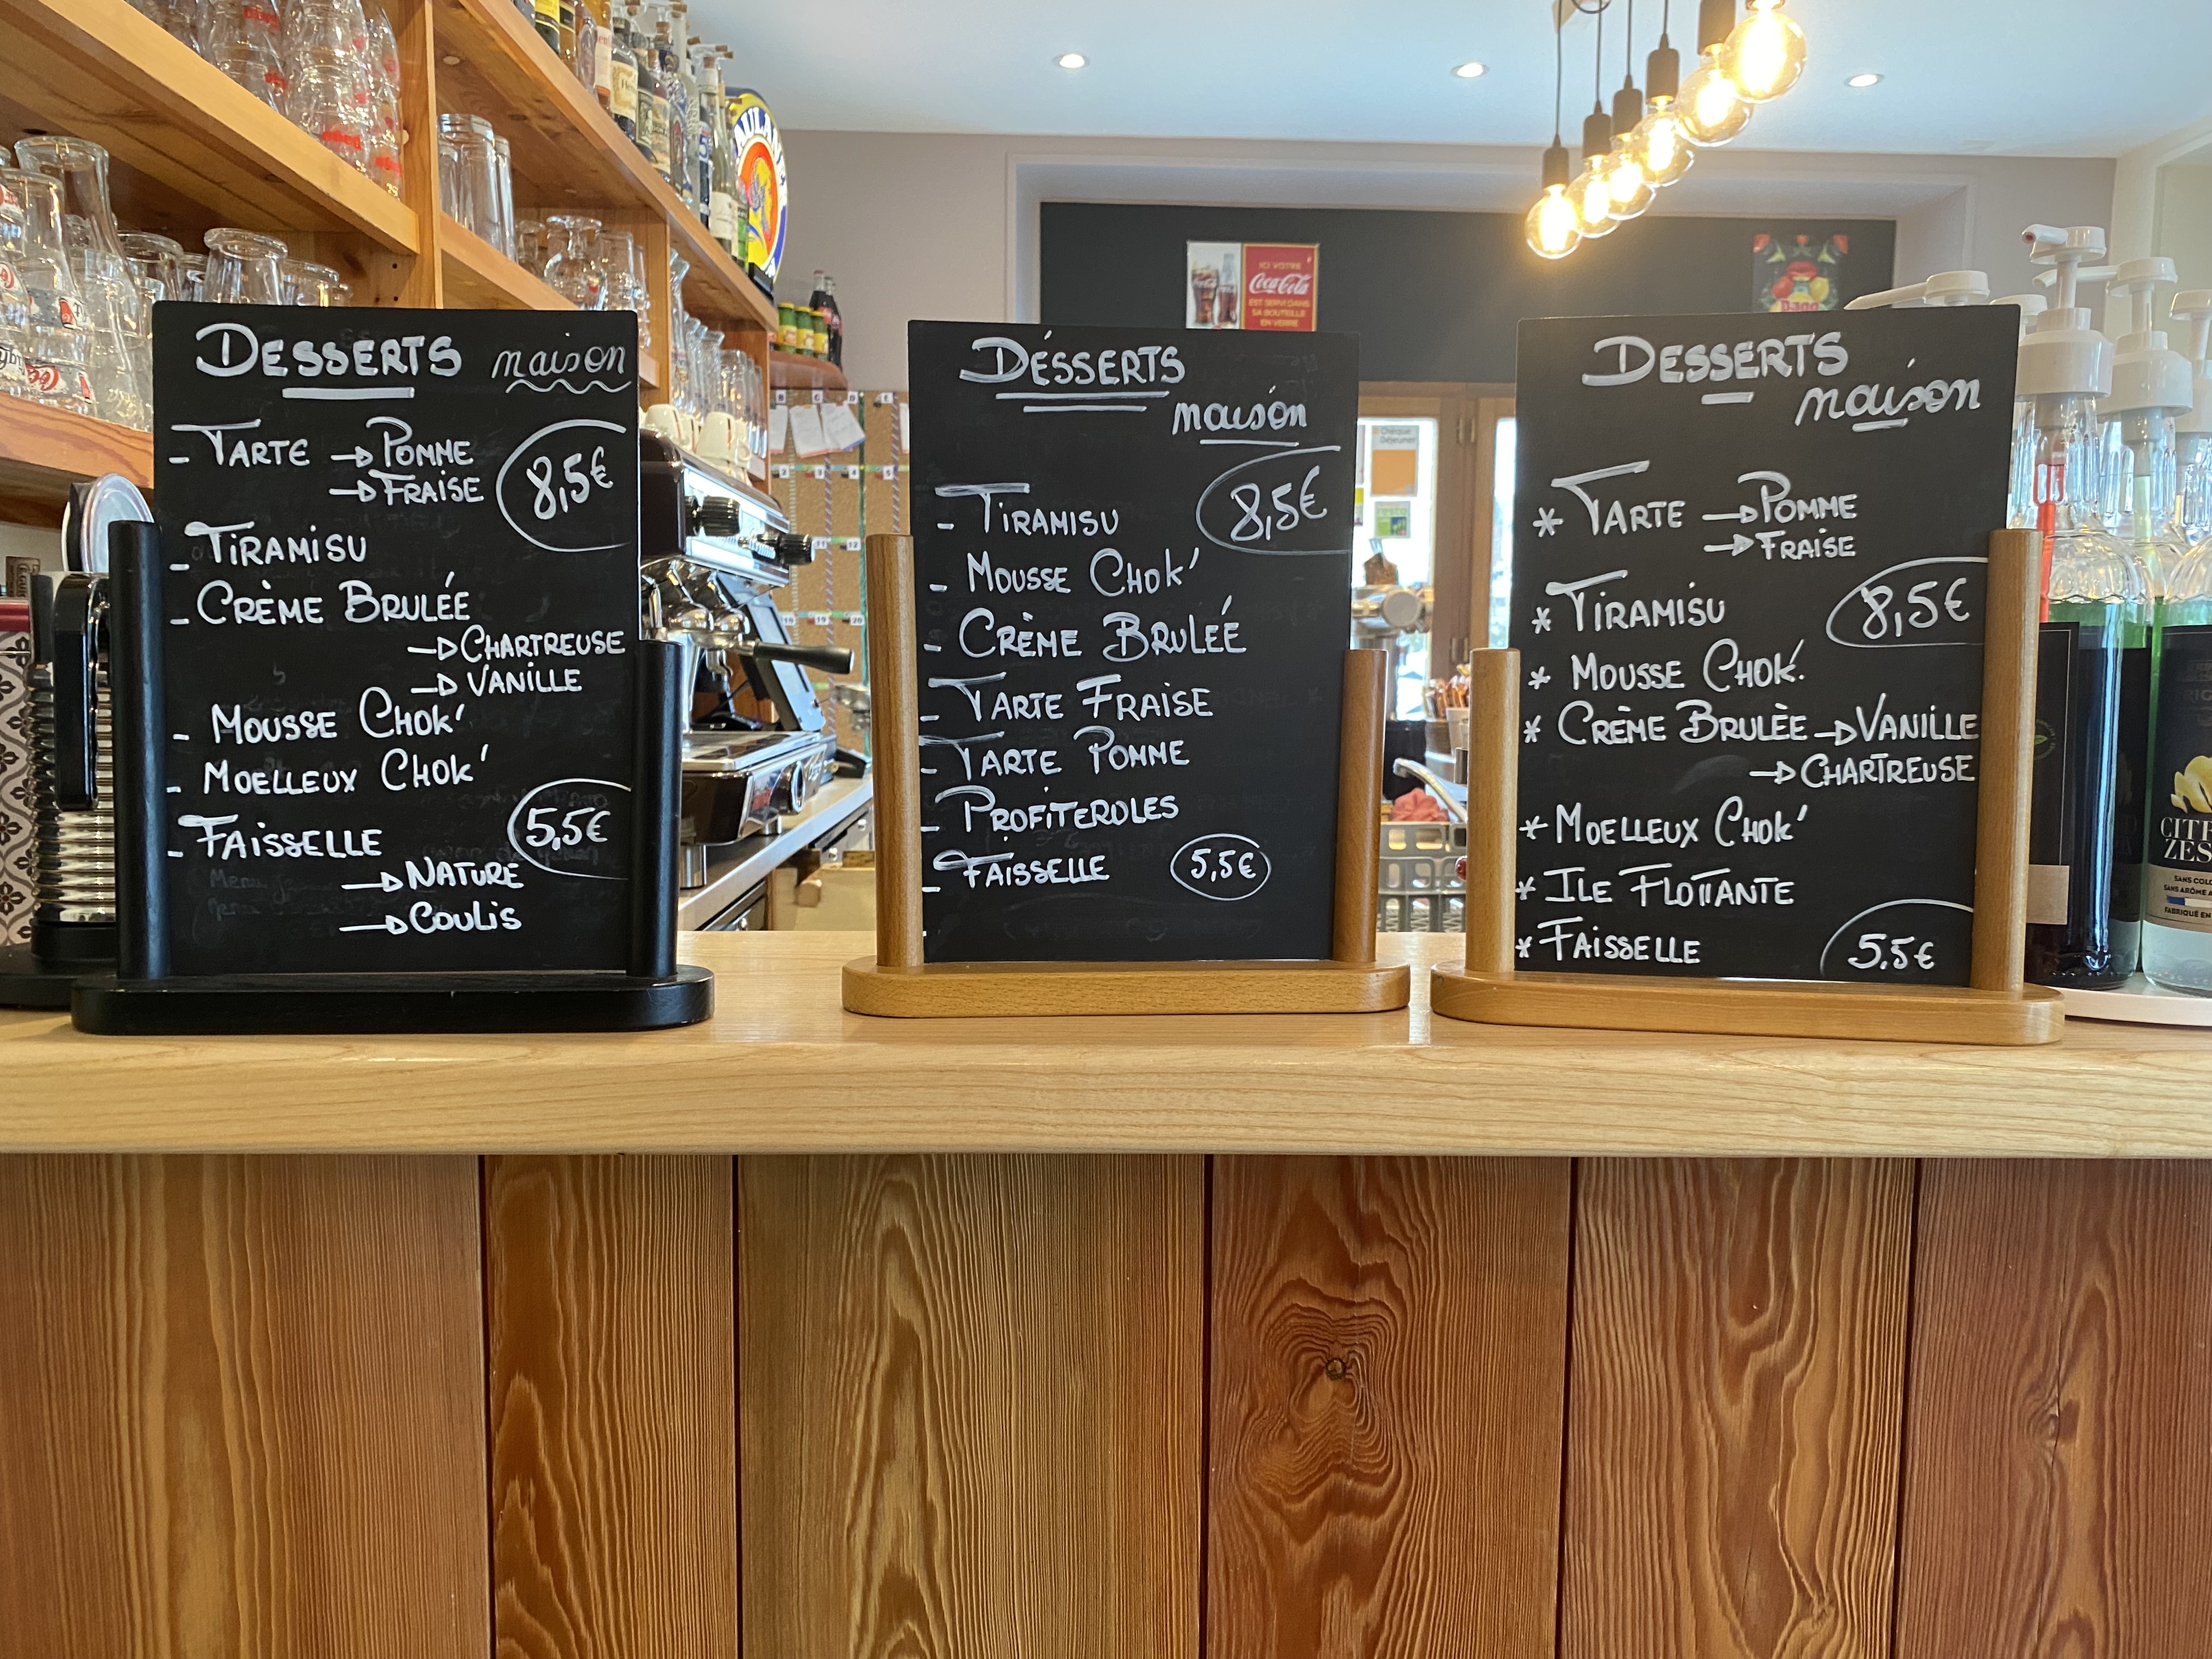 DESSERTS maison
- TARTE → POMME
→ FRAISE
8,5€
- TIRAMISU
- CRÈME BRULÉE
→ CHARTREUSE
→ VANILLE
- MOUSSE CHOK'
- MOELLEUX CHOK'
- FAISSELLE
5,5€
→ NATURE
→ COULIS
DÉSSERTS
maison
8,5€
- TIRAMISU
- MOUSSE CHOK'
- CRÈME BRULEÉ
- TARTE FRAISE
- TARTE POMME
- PROFITEROLES
- FAISSELLE 5,5€
DESSERTS
maison
* TARTE → POMME
→ FRAISE
* TIRAMISU 8,5€
* MOUSSE CHOK.
* CRÈME BRULÈE → VANILLE
→ CHARTREUSE
* MOELLEUX CHOK'
* ILE FLOTTANTE
* FAISSELLE 5.5€
ICI VOTRE
Coca-Cola
EST SERVI DANS
SA BOUTEILLE
EN VERRE
Chèque
Déjeuner